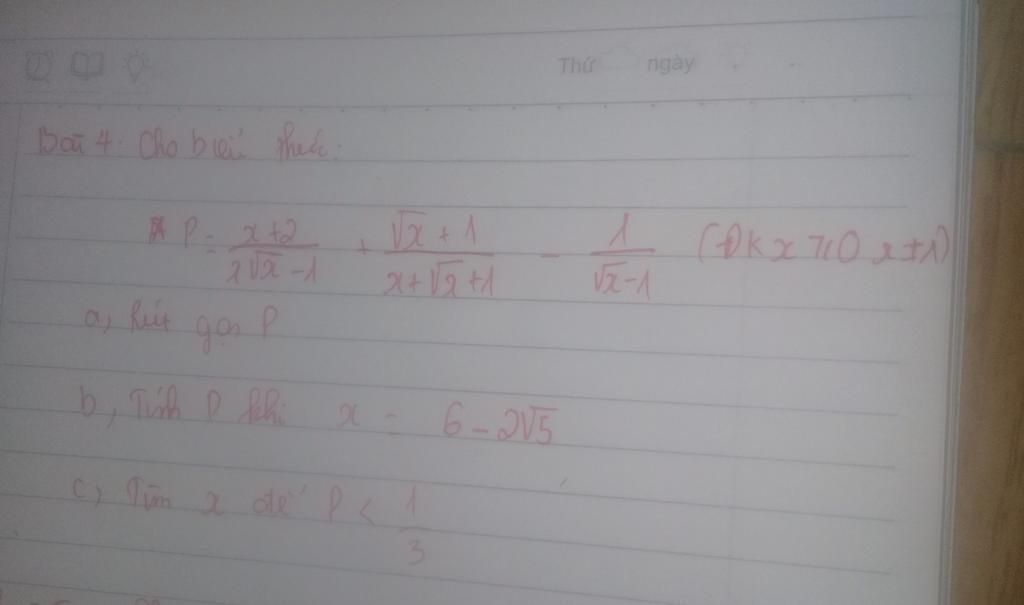 Thứ ngày
Bài 4: Cho biểu thức:
P = \frac{x+2}{x\sqrt{x}-1} + \frac{\sqrt{x}+1}{x+\sqrt{x}+1} - \frac{1}{\sqrt{x}-1} (ĐK x ≥ 0 x ≠ 1)
a, Rút gọn P
b, Tính P khi x = 6 - 2\sqrt{5}
c, Tìm x để P < \frac{1}{3}